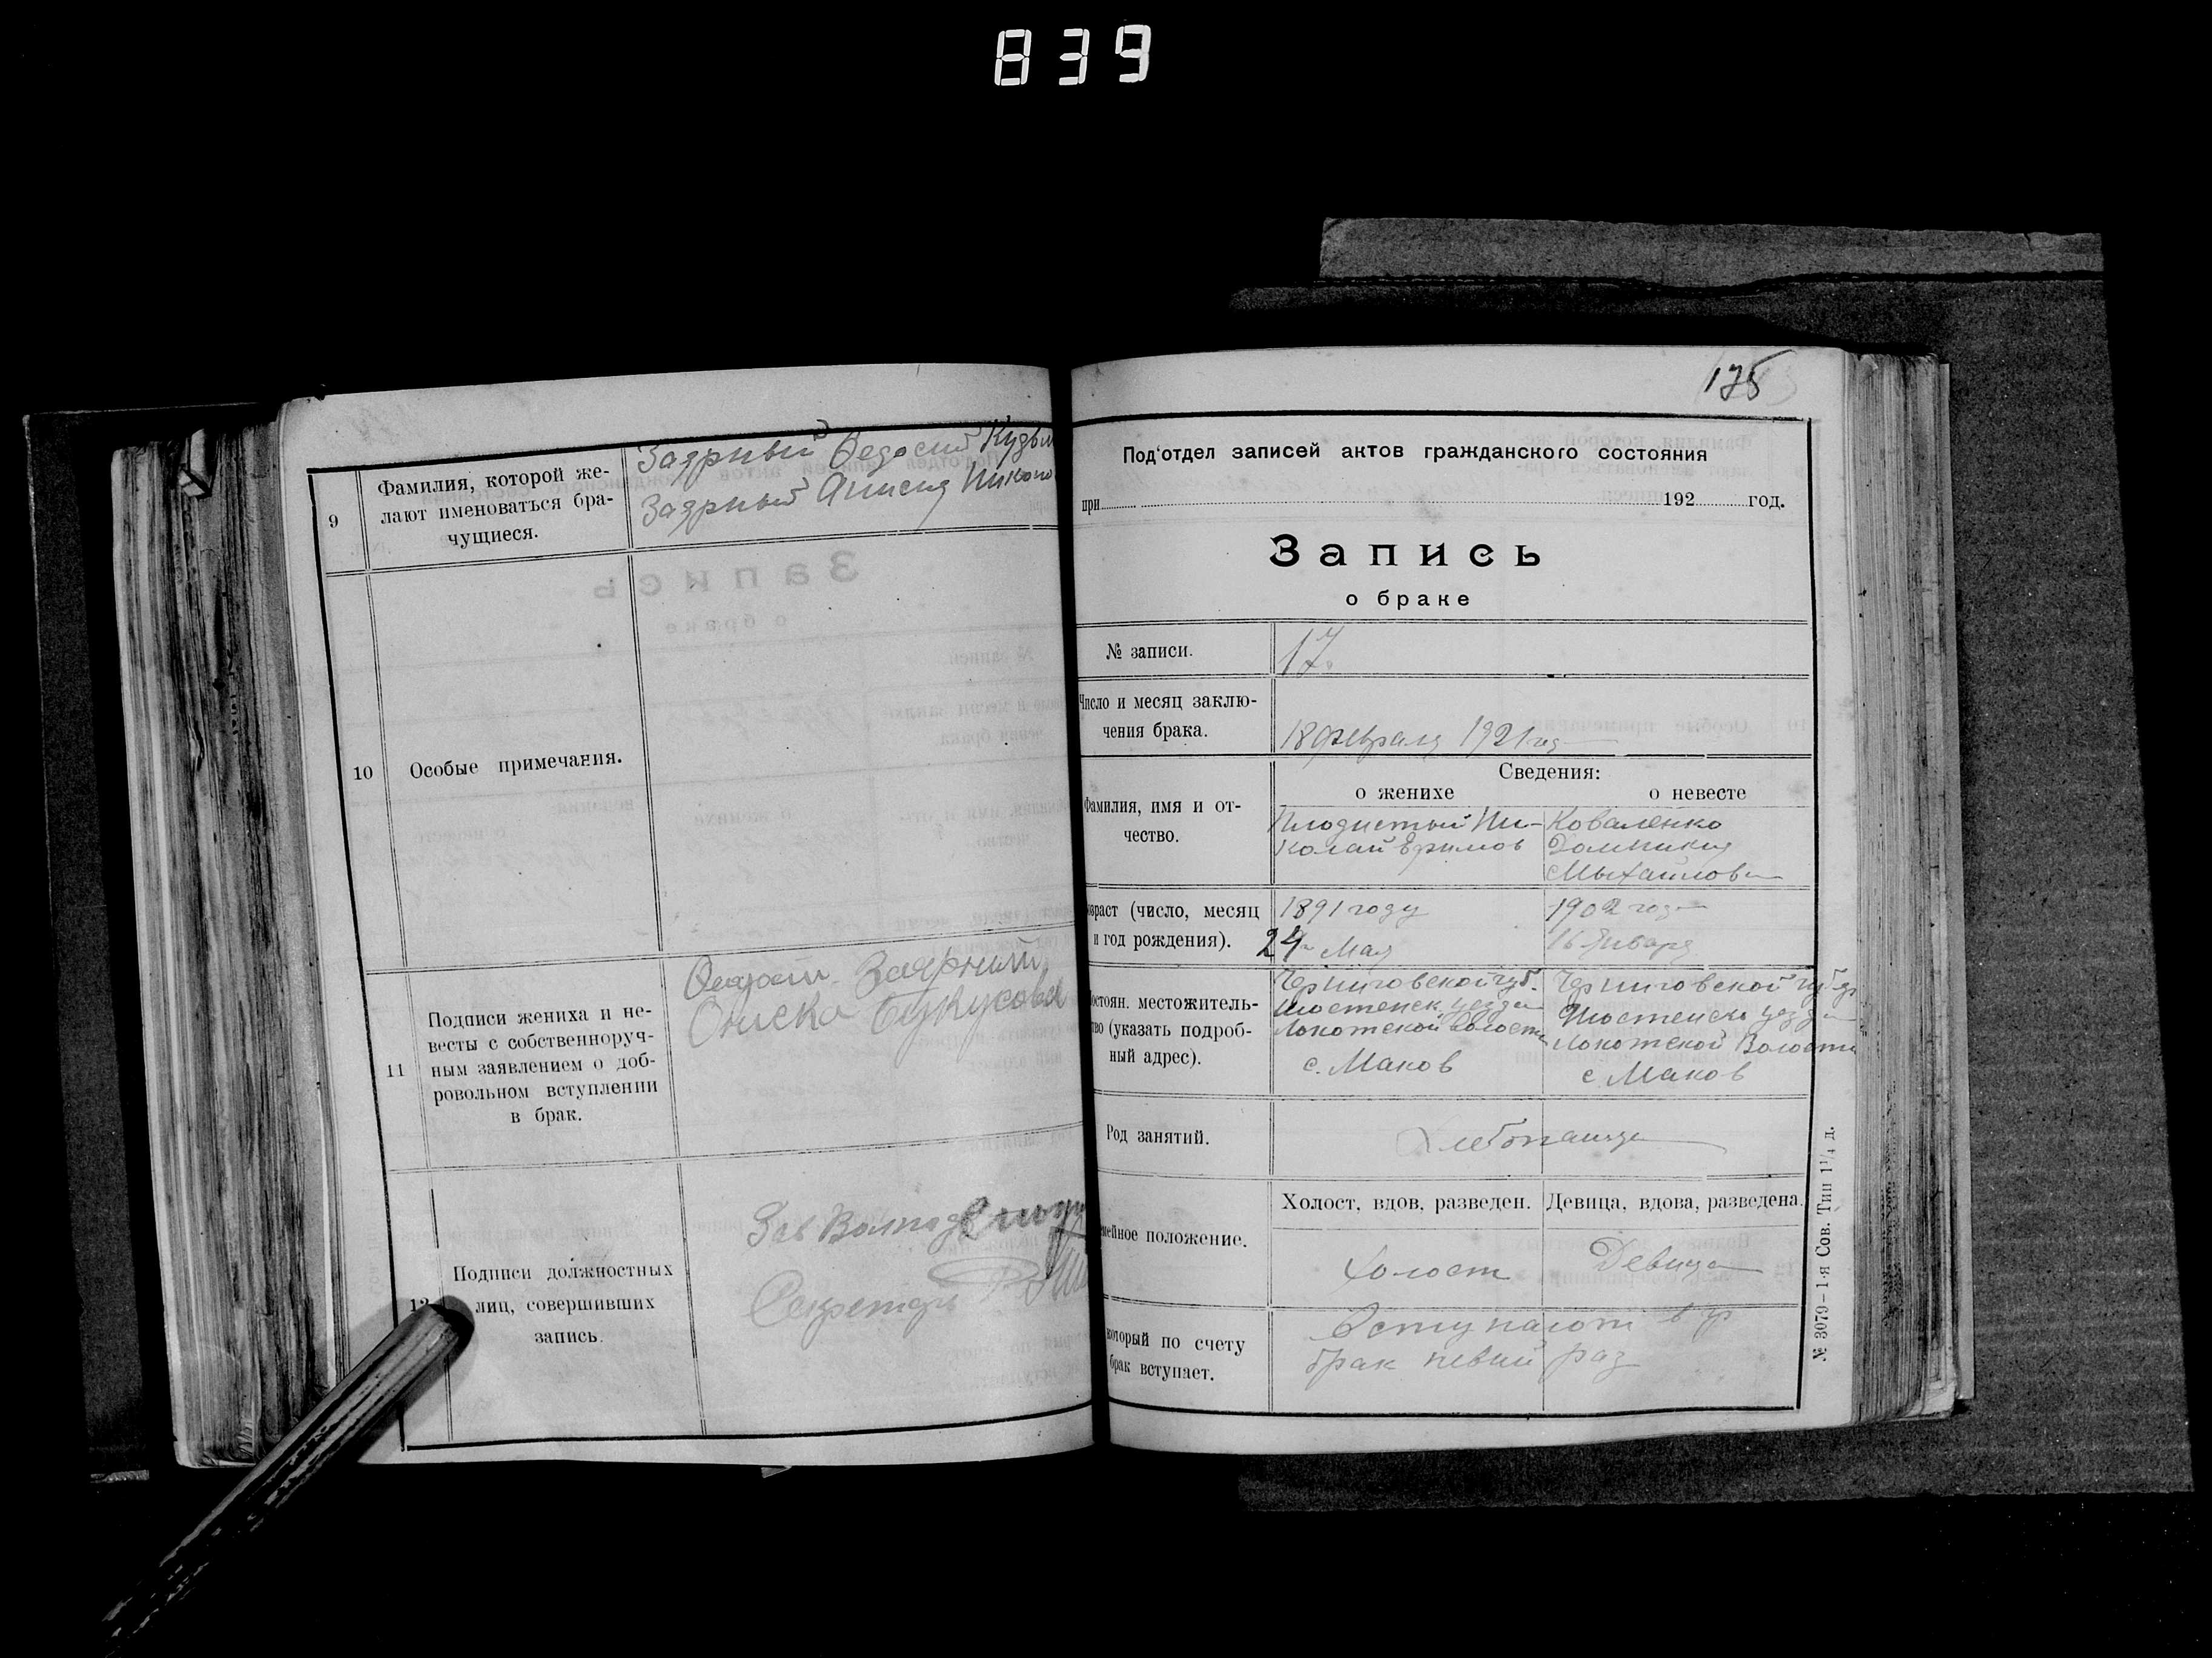 839
9
Фамилия, которой же-
лают именоваться бра-
чущиеся.
Заярный Федосий Кузьм
Заярный Анисия Никоно
10
Особые примечания.
11
Подписи жениха и не-
весты с собственноруч-
ным заявлением о доб-
ровольном вступлении
в брак.
Заярний
Ониска
12
Подписи должностных
лиц, совершивших
запись.
Зав
Секретарь
175
Под'отдел записей актов гражданского состояния
при 192 год.
Запись
о браке
№ записи.
17.
Число и месяц заклю-
чения брака.
18 февраля 1921 год
Сведения:
о женихе
о невесте
Фамилия, имя и от-
чество.
Плодистый Ни-
колай Ефимов
Коваленко
Домникия
Мыхайлов
озраст (число, месяц
и год рождения).
1891 году
24 Мая
1902 год
16 Января
остоян. местожитель-
тво (указать подроб-
ный адрес).
Черниговской губ.
Шостенск уезда
Локотской волости
с. Маков
Черниговской губ
Шостенско уезда
Локотской Волости
с. Маков
Род занятий.
Хлебопашца
мейное положение.
Холост, вдов, разведен.
Девица, вдова, разведена.
Холост
Девица
который по счету
брак вступает.
Вступают в
брак певий раз
№ 3079–1-я Сов. Тип 1¹/₄ д.